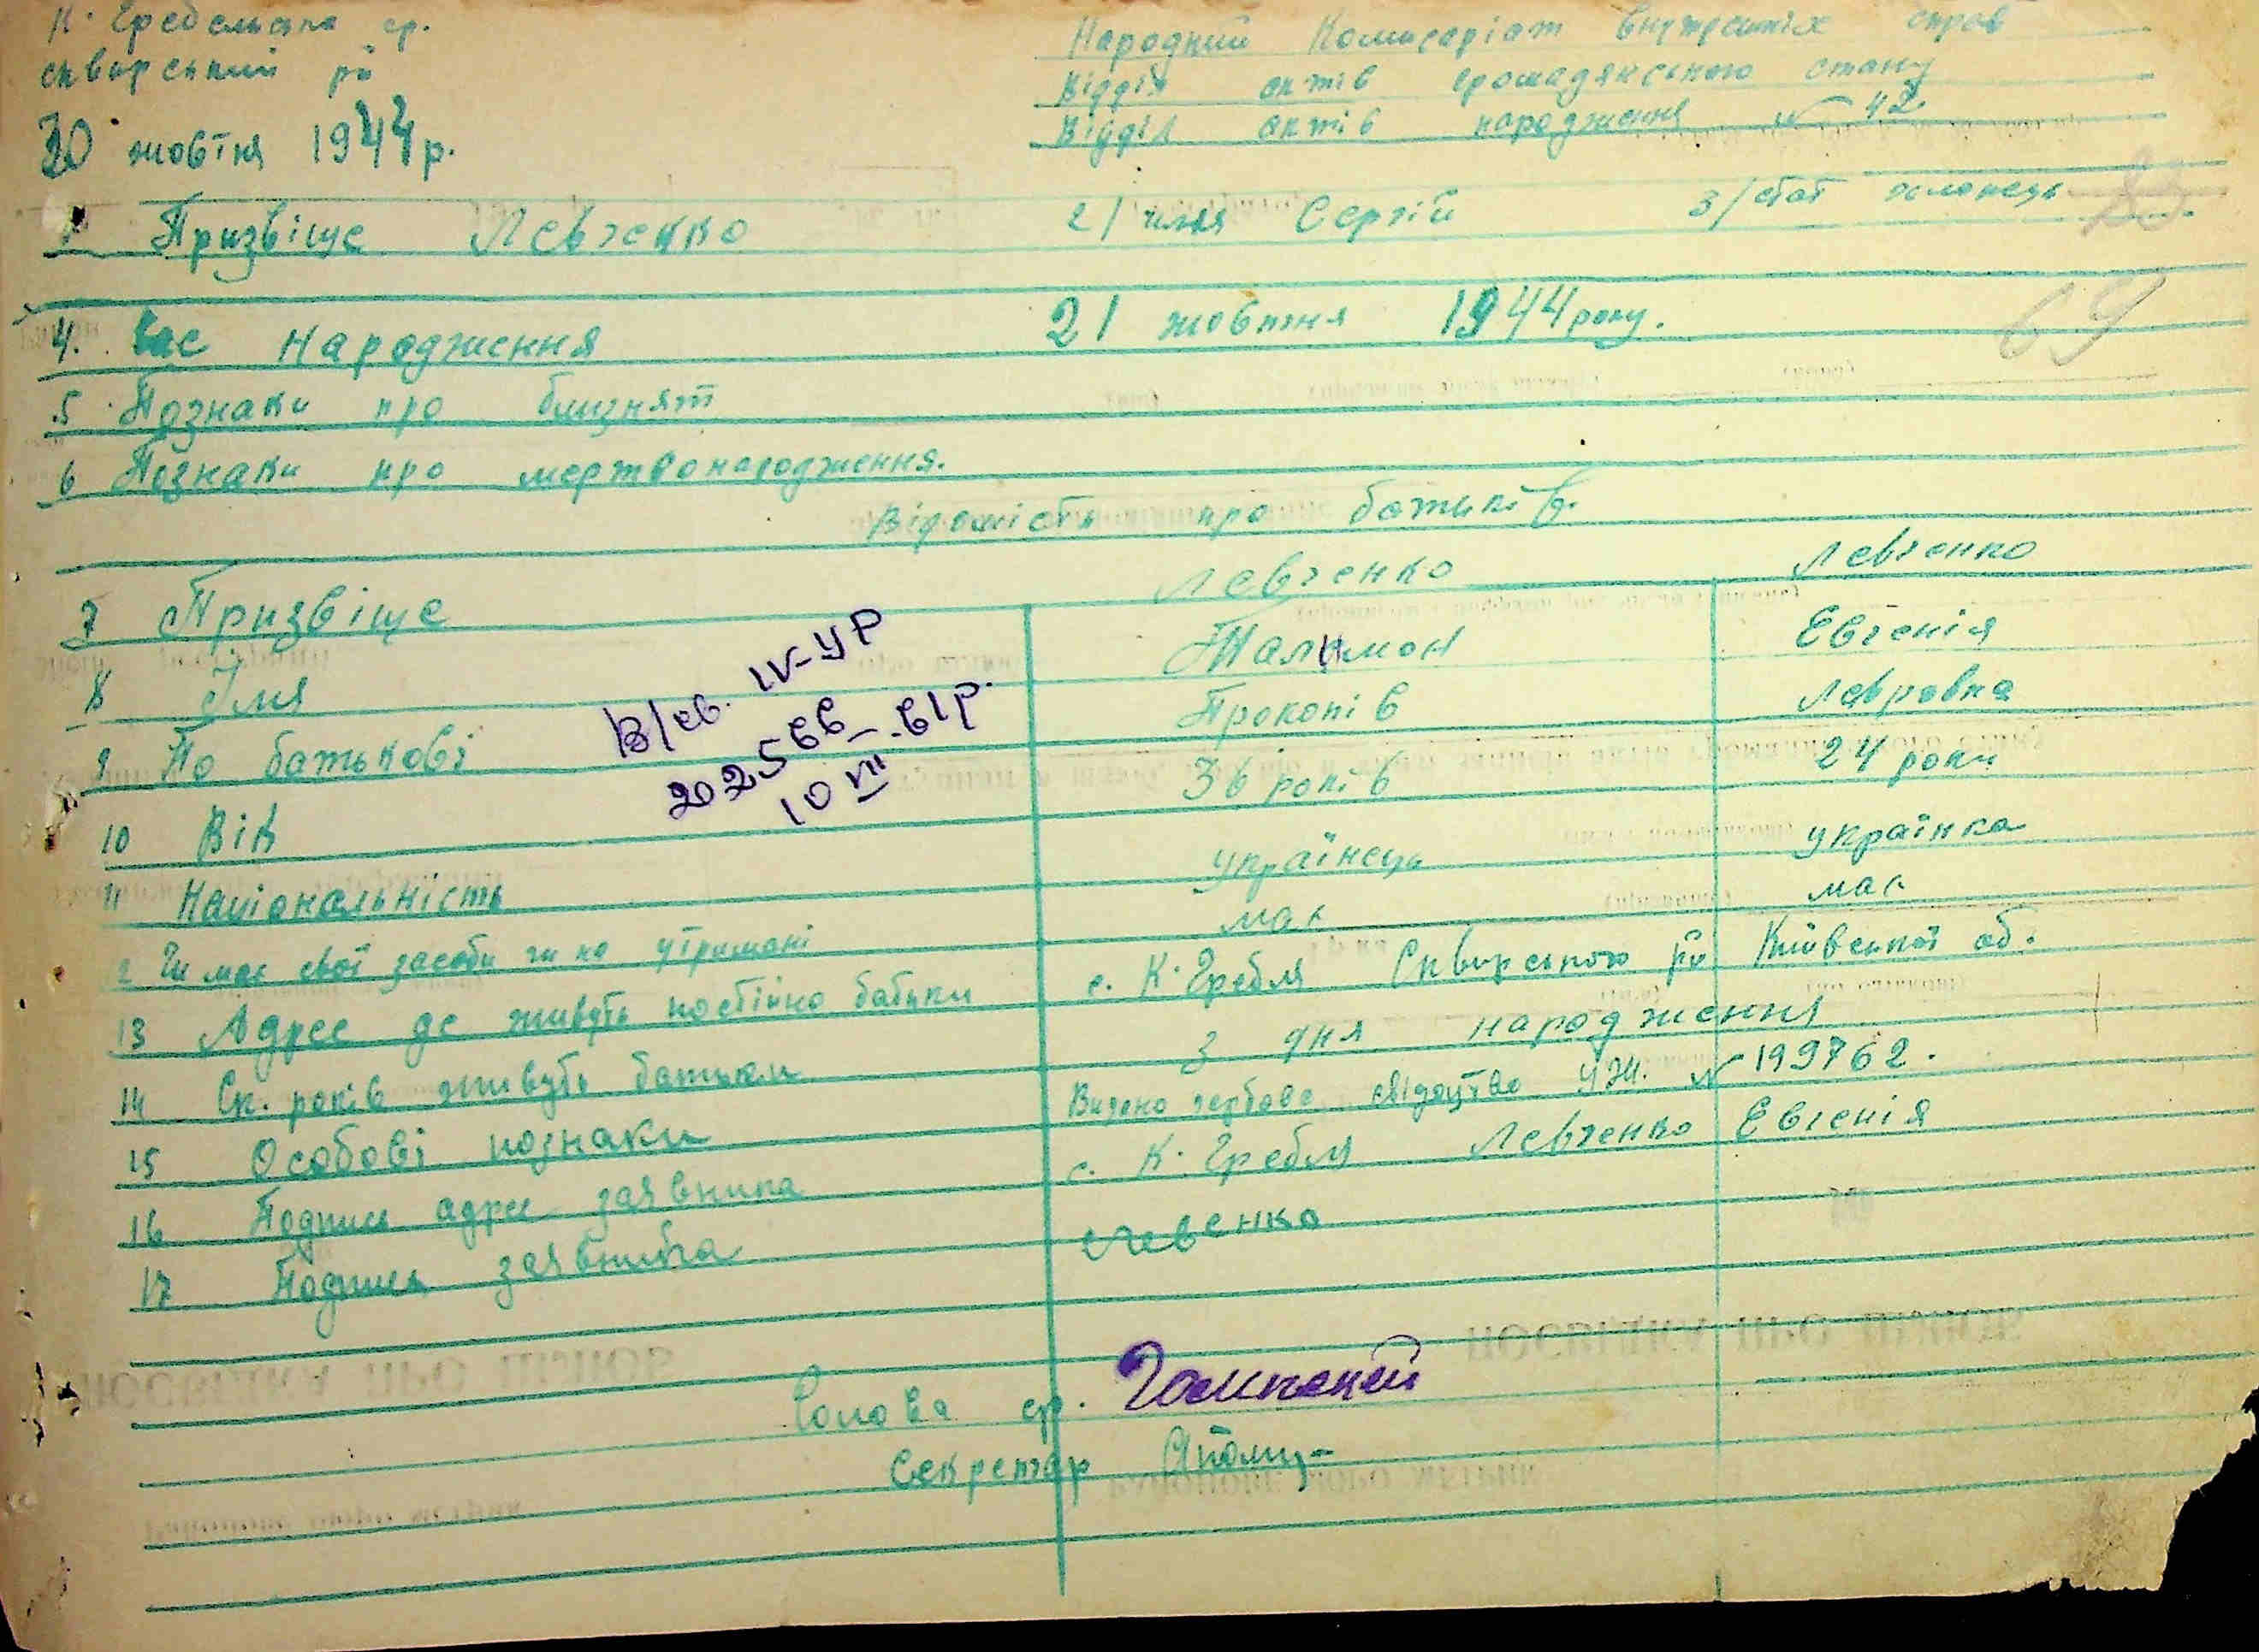 К. Гребельська ср.
сквирський рн
30 жовтня 1944 р.
Народний Комисаріат внутрешніх справ
Відділ актів громадянського стану
Відділ актів народження № 42
1 Призвіще Левченко 2/ имя Сергій 3/ стат хлопець
69
4. Час народження 21 жовтня 1944 року.
5 Познаки про близнят
6 Познаки про мертвонародження.
Відомість про батьків.
7 Призвіще Левченко Левченко
8 Імя Талимон Евгенія
9 По батькові Прокопів Лавровна
10 Вік 36 років 24 роки
11 Національність Українець Українка
2 Чи має свої засоби чи на утримані має має
13 Адрес де живуть постійно батьки с. К. Гребля Сквирського рн Київської об.
14 Ск. років живуть батьки з дня народження
15 Особові познаки Видано гербове свідоцтво УЖ. № 199762.
16 Подпись адрес заявника с. К. Гребля Левченко Евгенія
17 Подпись заявника Левенко
В/св. IV-УР
202599
10 VII
Голова ср.
Секретар
ПОСВІДКА ПРО ШЛЮБ
ПОСВІДКА ПРО ШЛЮБ